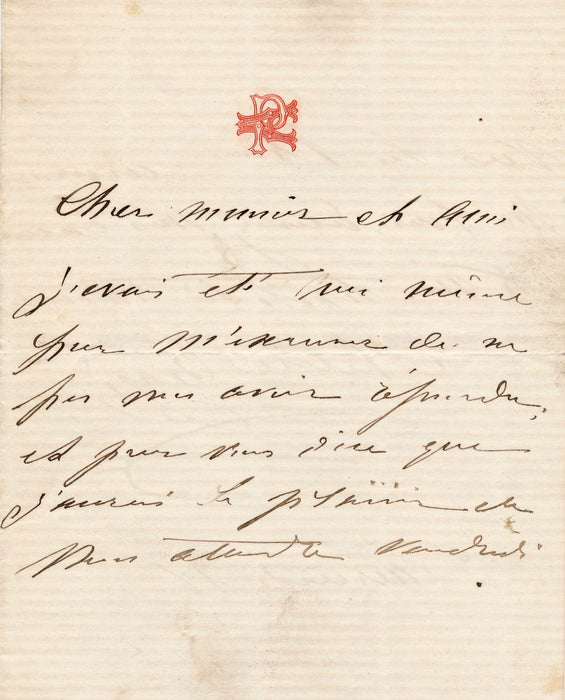 Cher ami
j'avais été moi même
pour m'excuser de ne
pas vous avoir répondu,
et pour vous dire que
j'aurais le plaisir de
vous attendre vendredi